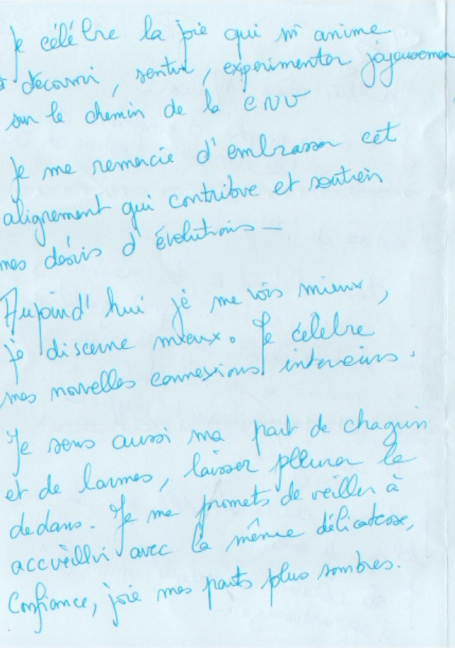 Je célèbre la joie qui m'anime
découvrir, sentir, expérimenter joyeusement
sur le chemin de la CNV
Je me remercie d'embrasser cet
alignement qui contribue et soutien
mes désirs d'évolutions —
Aujourd'hui je me vois mieux,
je discerne mieux. Je célèbre
mes nouvelles connexions intérieures.
Je sens aussi ma part de chagrin
et de larmes, laisser pleurer le
dedans. Je me promets de veiller à
accueillir avec la même délicatesse,
Confiance, joie mes parts plus sombres.